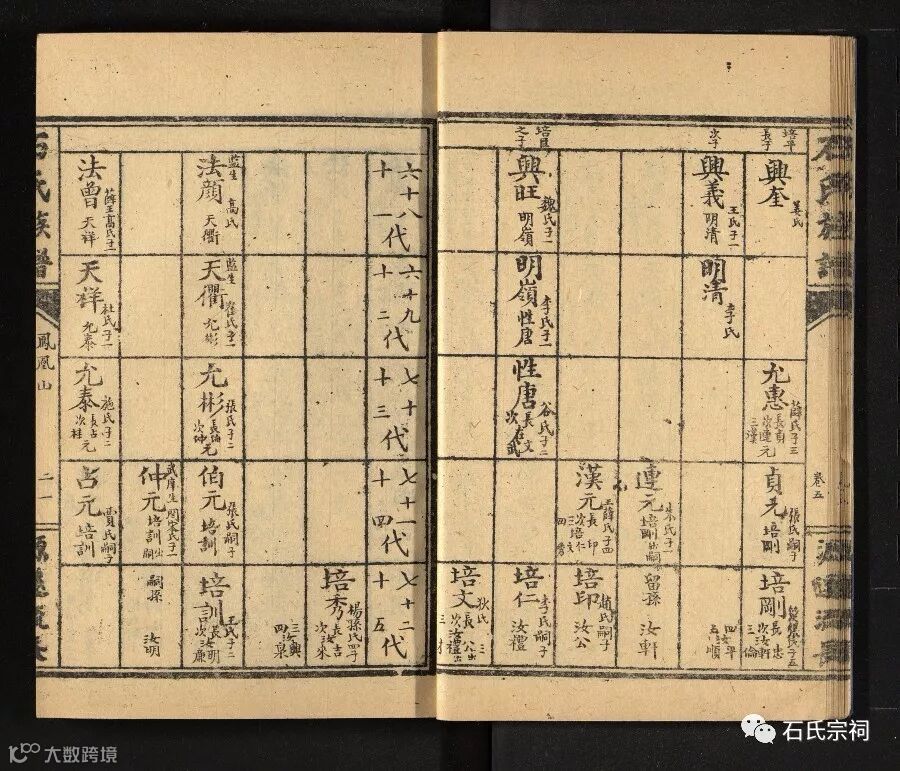 石氏族譜
卷五
培平
長子
興奎
姜氏
次子
興義
王氏子一
明清
培真
之子
興旺
魏氏子一
明嶺
明清
李氏
明嶺
李氏子一
性唐
允惠
薛氏子三
長貞
次連元
三漢
性唐
谷氏子二
長文
次武
貞元
張氏嗣子
培剛
連元
朱氏子一
培剛出嗣
漢元
王薛氏子四
長印
次培仁
三文
四秀
培剛
長忠
次汝軒
三倫
四汝平
五順
留孫
汝軒
培印
趙氏嗣子
汝公
培仁
李氏嗣子
汝禮
培文
狄氏
三
長公出
次汝禮出
三才
六十八代
十一
六十九代
十二
七十代
十三
七十一代
十四
七十二代
十五
監生
法顏
高氏
天衢
法曾
薛王高氏子一
天祥
監生
天衢
崔氏子一
允彬
天祥
杜氏子一
允泰
允彬
張氏子二
長伯
次仲元
允泰
施氏子二
長占
次桂元
伯元
張氏嗣子
培訓
武庠生
仲元
周宋氏子一
培訓出嗣
占元
賈氏嗣子
培訓
培秀
楊孫氏四子
長吉
次汝來
三汝興
四泉
培訓
王氏子二
長汝明
次汝廉
嗣孫
汝明
石氏族譜
鳳凰山
二一
源遠流長
石氏宗祠
大数跨境